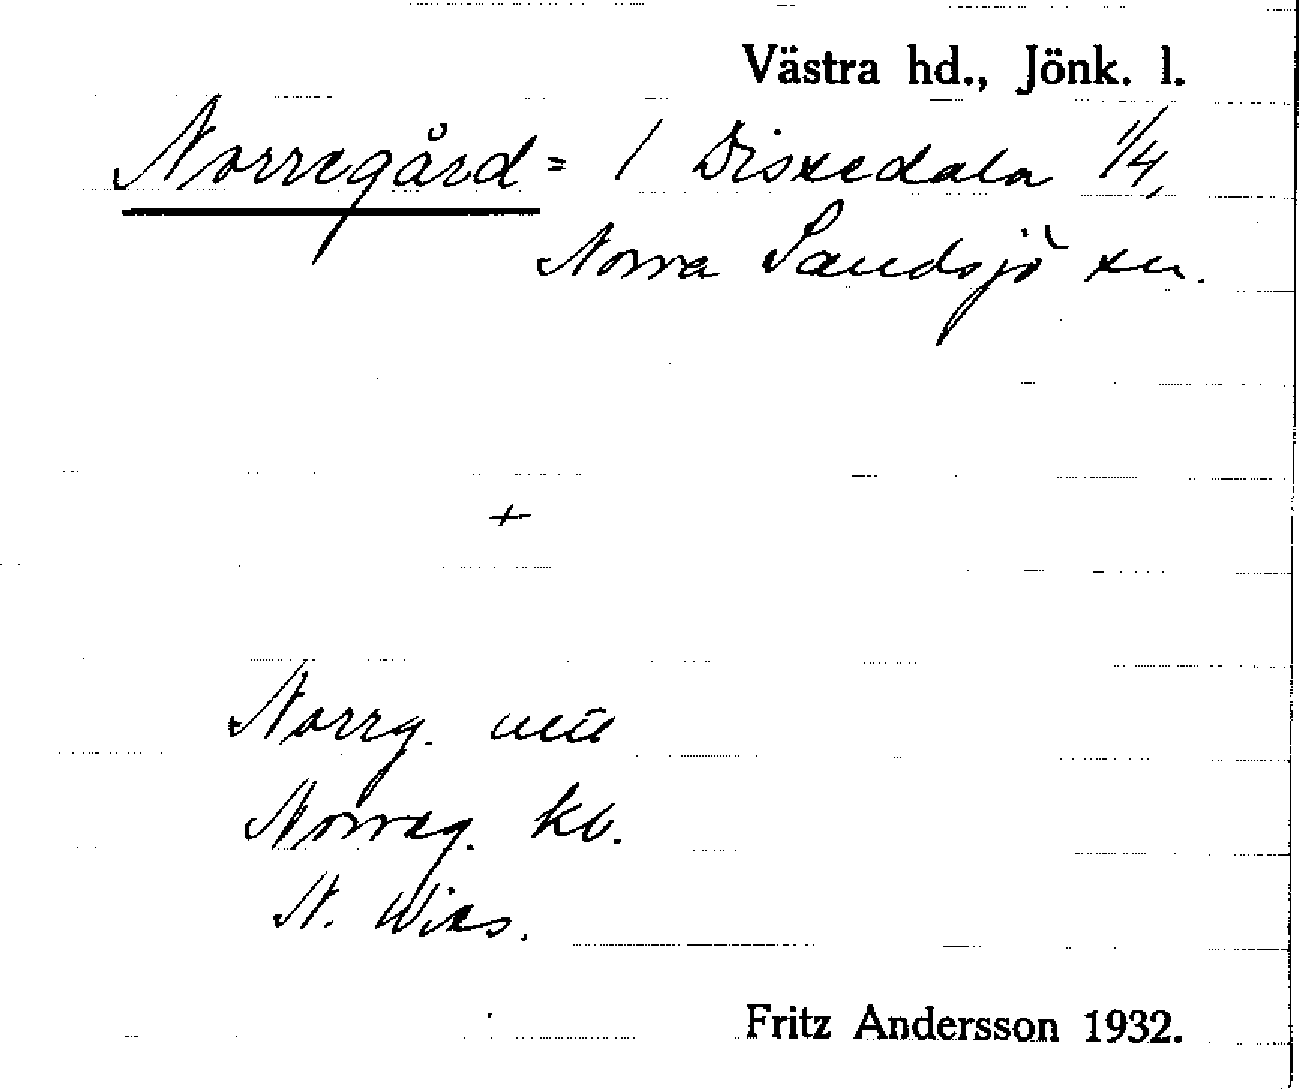 Västra hd., Jönk. l.
Norregård = / Diskedala 1/4,
Norra Sandsjö sn.
+
Norrg.
Norreg. kb.
N. Wies.
Fritz Andersson 1932.